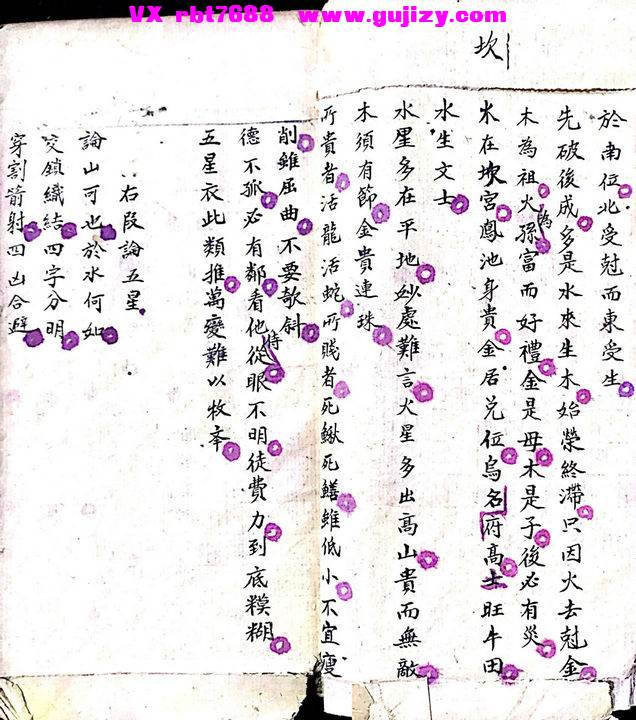 VX rbt7688 www.gujizy.com
坎
於南位北受尅而東受生
先破後成多是水來生木始榮終滯只因火去尅金
木為祖火為孫富而好禮金是母木是子後必有災
水在坎宮鳳池身貴金居兌位烏府名高土旺牛田
水生文士
水星多在平地妙處難言火星多出高山貴而無敵
木須有節金貴連珠
所貴者活龍活蛇所賤者死鰍死鱔雖低小不宜瘦
削雖屈曲不要欹斜
德不孤必有鄰看他侍從眼不明徒費力到底糢糊
五星衣此類推萬變難以牧夲
右段論五星
論山可也於水何如
交鎖織結四字分明
穿割箭射四凶合避